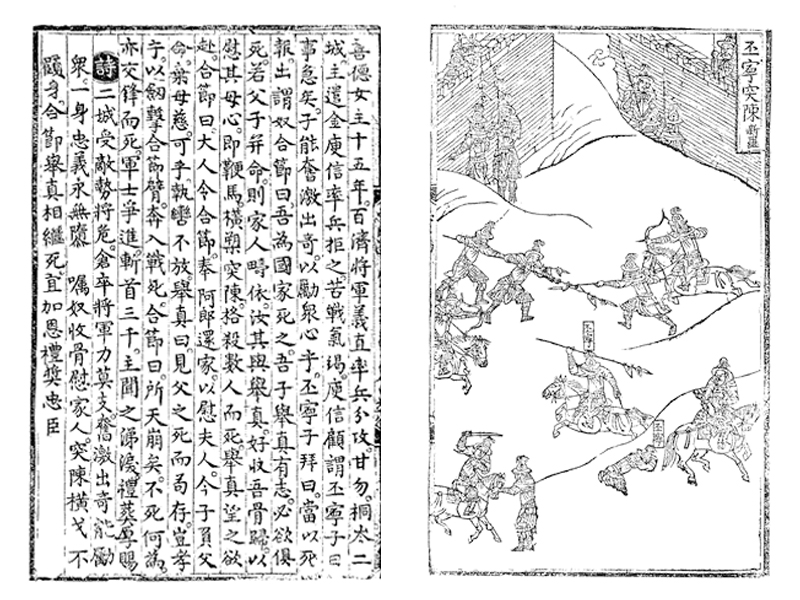 丕寧突陳 新羅
丕寧子
善德女主十五年。百濟將軍義直率兵分攻。甘勿。桐岑二
城。主遣金庾信率兵拒之。苦戰氣竭。庾信顧謂丕寧子曰。
事急矣。子能奮激出奇。以勵衆心乎。丕寧子拜曰。當以死
報。出謂奴合節曰。吾為國家死之。吾子舉真有志。必欲俱
死。若父子幷命。則家人疇依。汝其與舉真。好收吾骨歸。以
慰其母心。即鞭馬。橫槊突陳。格殺數人而死。舉真望之欲
赴。合節曰。大人令合節。奉阿郎還家。以慰夫人。今子負父
命。棄母慈。可乎。執轡不放。舉真曰。見父之死而苟存。豈孝
子。以劒擊合節臂。奔入戰死。合節曰。所天崩矣。不死何為。
亦交鋒而死。軍士爭進。斬首三千。主聞之涕淚。禮葬厚賜
詩 二城受敵勢將危。倉卒將軍力莫支。奮激出奇能勵
衆。一身忠義永無隳 嘱奴收骨慰家人。突陳橫戈不
顧身。合節舉真相繼死。宜加恩禮奬忠臣